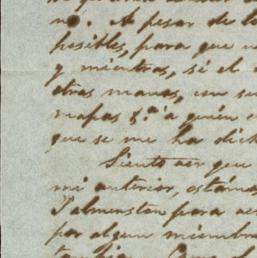 no. A pesar de lo
posibles, para que
y mientras, si el
otras manos, con su
mapas &.ª á quien
que se me ha dich
Siento ver que
mi anterior, estáma
Palmerston para ver
por algun miembro